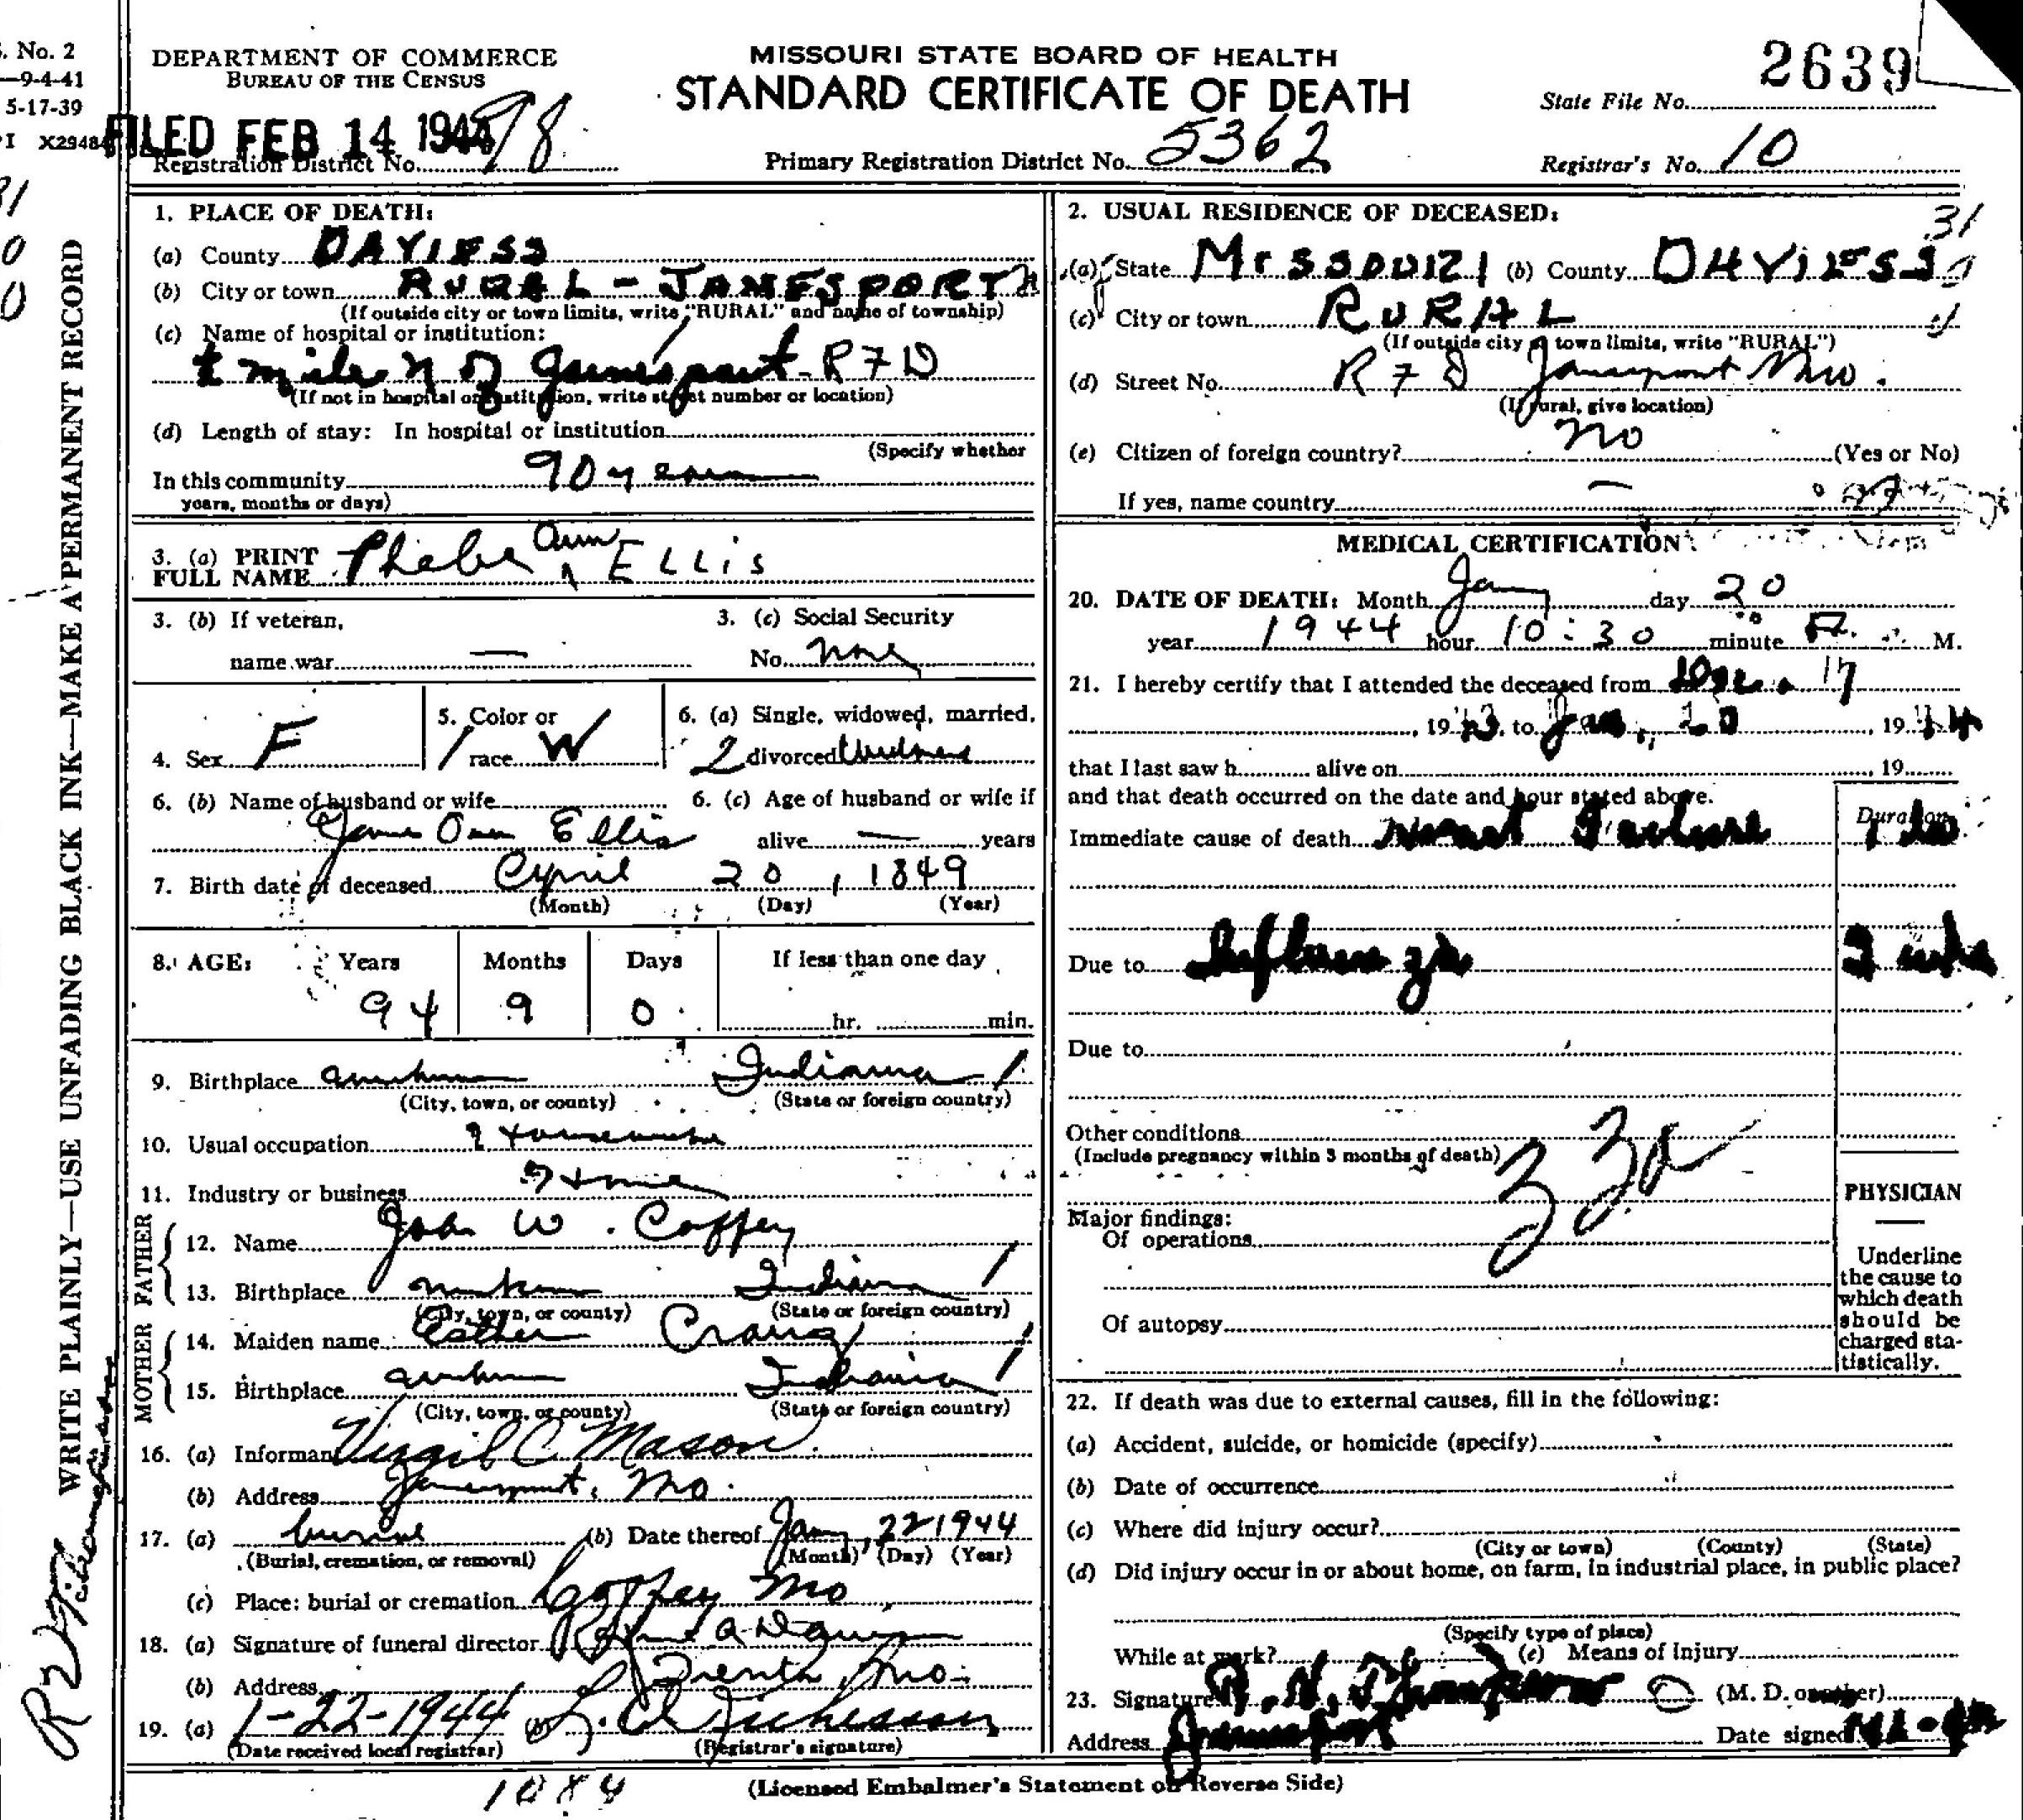 S. No. 2
—9-4-41
5-17-39
X29484
DEPARTMENT OF COMMERCE
BUREAU OF THE CENSUS
MISSOURI STATE BOARD OF HEALTH
STANDARD CERTIFICATE OF DEATH
2639
State File No.
FILED FEB 14 1944
Registration District No. 98
Primary Registration District No. 5362
Registrar's No. 10
WRITE PLAINLY—USE UNFADING BLACK INK—MAKE A PERMANENT RECORD
1. PLACE OF DEATH:
(a) County DAVIESS
(b) City or town RURAL - JAMESPORT
(If outside city or town limits, write "RURAL" and name of township)
(c) Name of hospital or institution:
mile N of Jamesport R F D
(If not in hospital or institution, write street number or location)
(d) Length of stay: In hospital or institution
(Specify whether
In this community 90 years
years, months or days)
2. USUAL RESIDENCE OF DECEASED:
31
(a) State MISSOURI (b) County DAVIESS
(c) City or town RURAL
(If outside city or town limits, write "RURAL")
(d) Street No. R F D Jamesport Mo.
(If rural, give location)
(e) Citizen of foreign country? no (Yes or No)
If yes, name country —
3. (a) PRINT FULL NAME Phebe Ann ELLIS
3. (b) If veteran,
name war —
3. (c) Social Security
No. none
4. Sex F
5. Color or
race W
6. (a) Single, widowed, married,
2 divorced Widowed
6. (b) Name of husband or wife
James Ellis
6. (c) Age of husband or wife if
alive — years
7. Birth date of deceased April 20, 1849
(Month) (Day) (Year)
8. AGE: Years Months Days If less than one day
94 9 0 hr. min.
9. Birthplace unknown Indiana 1
(City, town, or county) (State or foreign country)
10. Usual occupation Housewife
11. Industry or business Home
FATHER
12. Name John W. Coffey
13. Birthplace unknown Indiana 1
(City, town, or county) (State or foreign country)
MOTHER
14. Maiden name Esther Craig 1
15. Birthplace unknown Indiana 1
(City, town, or county) (State or foreign country)
16. (a) Informant Virgil C. Mason
(b) Address Jamesport, Mo.
17. (a) burial (b) Date thereof Jan, 22 1944
(Burial, cremation, or removal) (Month) (Day) (Year)
(c) Place: burial or cremation Coffey Mo
18. (a) Signature of funeral director
(b) Address Trenton, Mo.
19. (a) 1-22-1944 (b)
(Date received local registrar) (Registrar's signature)
MEDICAL CERTIFICATION
20. DATE OF DEATH: Month Jan day 20
year 1944 hour 10:30 minute A. M.
21. I hereby certify that I attended the deceased from Dec. 17
, 1943, to Jan, 20, 1944
that I last saw h alive on , 19
and that death occurred on the date and hour stated above.
Duration
Immediate cause of death Heart Failure
Due to Influenza 2 wks
Due to
Other conditions
(Include pregnancy within 3 months of death)
33a
PHYSICIAN
Major findings:
Of operations
Of autopsy
Underline
the cause to
which death
should be
charged sta-
tistically.
22. If death was due to external causes, fill in the following:
(a) Accident, suicide, or homicide (specify)
(b) Date of occurrence
(c) Where did injury occur?
(City or town) (County) (State)
(d) Did injury occur in or about home, on farm, in industrial place, in public place?
(Specify type of place)
While at work? (e) Means of injury
23. Signature Thompson (M. D. or other)
Address Jamesport Date signed
(Licensed Embalmer's Statement on Reverse Side)
1084